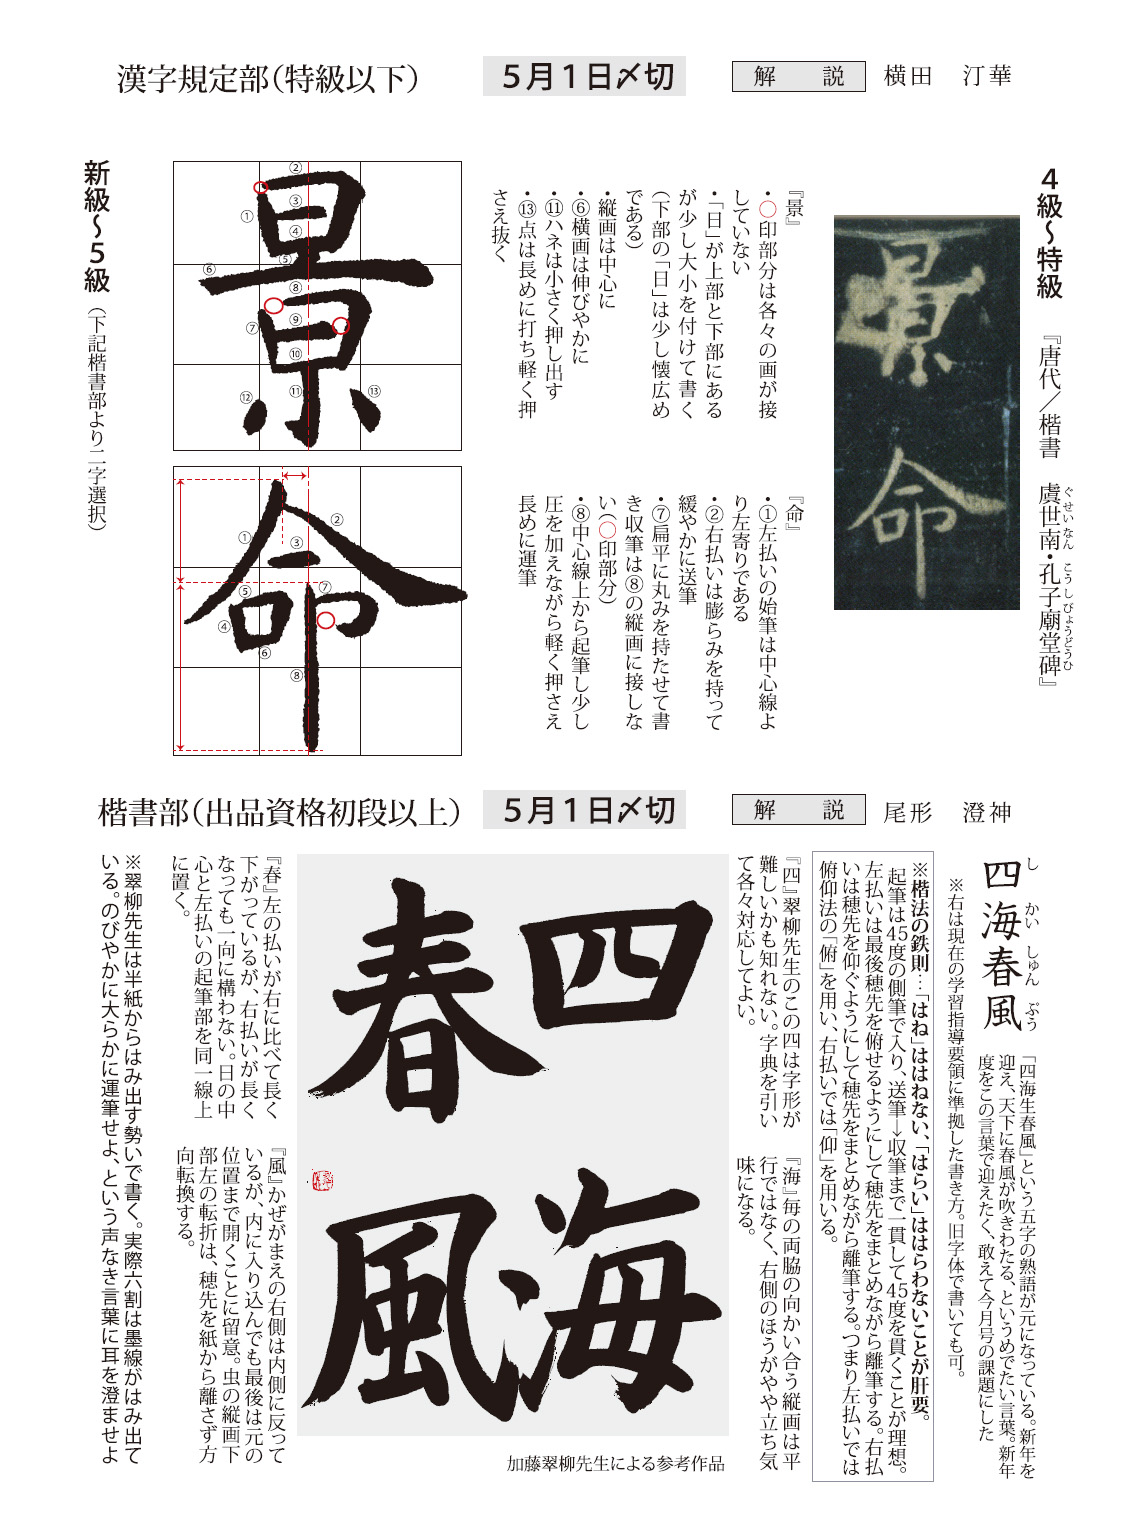 漢字規定部（特級以下）
５月１日〆切
解　説
横田　汀華
４級〜特級　『唐代／楷書　虞世南・孔子廟堂碑』
ぐせいなん　こうしびょうどうひ
景
命
『景』
・○印部分は各々の画が接
していない
・「日」が上部と下部にある
が少し大小を付けて書く
（下部の「日」は少し懐広め
である）
・縦画は中心に
・⑥横画は伸びやかに
・⑪ハネは小さく押し出す
・⑬点は長めに打ち軽く押
さえ抜く
『命』
・①左払いの始筆は中心線よ
り左寄りである
・②右払いは膨らみを持って
緩やかに送筆
・⑦扁平に丸みを持たせて書
き収筆は⑧の縦画に接しな
い（○印部分）
・⑧中心線上から起筆し少し
圧を加えながら軽く押さえ
長めに運筆
景
① ② ③ ④ ⑤ ⑥ ⑦ ⑧ ⑨ ⑩ ⑪ ⑫ ⑬
命
① ② ③ ④ ⑤ ⑥ ⑦ ⑧
新級〜５級（下記楷書部より二字選択）
楷書部（出品資格初段以上）
５月１日〆切
解　説
尾形　澄神
四海春風
し　かい　しゅん　ぷう
「四海生春風」という五字の熟語が元になっている。新年を
迎え、天下に春風が吹きわたる、というめでたい言葉。新年
度をこの言葉で迎えたく、敢えて今月号の課題にした
※右は現在の学習指導要領に準拠した書き方。旧字体で書いても可。
※楷法の鉄則…「はね」ははねない、「はらい」ははらわないことが肝要。
起筆は45度の側筆で入り、送筆→収筆まで一貫して45度を貫くことが理想。
左払いは最後穂先を俯せるようにして穂先をまとめながら離筆する。右払
いは穂先を仰ぐようにして穂先をまとめながら離筆する。つまり左払いでは
俯仰法の「俯」を用い、右払いでは「仰」を用いる。
『四』翠柳先生のこの四は字形が
難しいかも知れない。字典を引い
て各々対応してよい。
『海』毎の両脇の向かい合う縦画は平
行ではなく、右側のほうがやや立ち気
味になる。
四海
春風
加藤翠柳先生による参考作品
『春』左の払いが右に比べて長く
下がっているが、右払いが長く
なっても一向に構わない。日の中
心と左払いの起筆部を同一線上
に置く。
『風』かぜがまえの右側は内側に反って
いるが、内に入り込んでも最後は元の
位置まで開くことに留意。虫の縦画下
部左の転折は、穂先を紙から離さず方
向転換する。
※翠柳先生は半紙からはみ出す勢いで書く。実際六割は墨線がはみ出て
いる。のびやかに大らかに運筆せよ、という声なき言葉に耳を澄ませよ